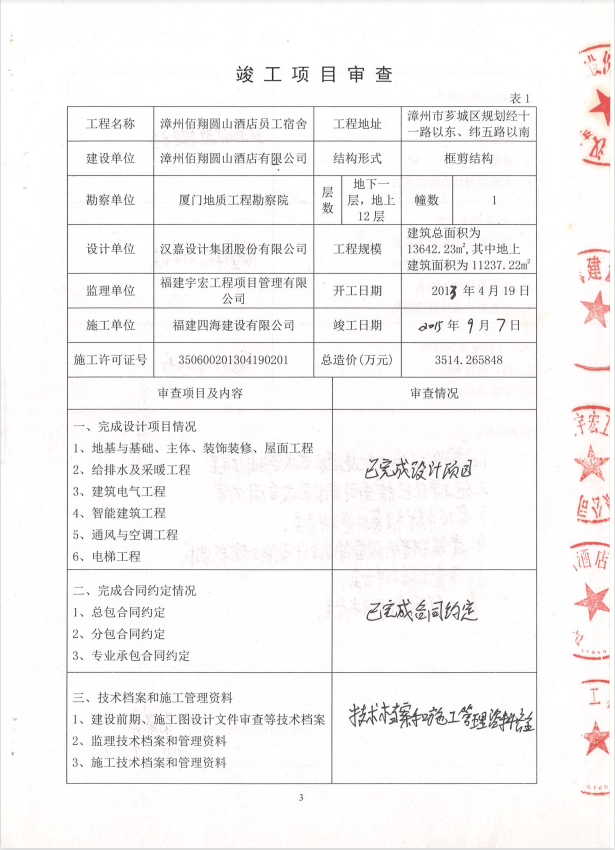 竣工项目审查
表1
工程名称 漳州佰翔圆山酒店员工宿舍 工程地址 漳州市芗城区规划经十
一路以东、纬五路以南
建设单位 漳州佰翔圆山酒店有限公司 结构形式 框剪结构
勘察单位 厦门地质工程勘察院 层
数 地下一
层，地上
12层 幢数 1
设计单位 汉嘉设计集团股份有限公司 工程规模 建筑总面积为
13642.23㎡,其中地上
建筑面积为11237.22㎡
监理单位 福建宇宏工程项目管理有限
公司 开工日期 2013年4月19日
施工单位 福建四海建设有限公司 竣工日期 2015年9月7日
施工许可证号 350600201304190201 总造价(万元) 3514.265848
审查项目及内容 审查情况
一、完成设计项目情况
1、地基与基础、主体、装饰装修、屋面工程
2、给排水及采暖工程
3、建筑电气工程
4、智能建筑工程
5、通风与空调工程
6、电梯工程
已完成设计项目
二、完成合同约定情况
1、总包合同约定
2、分包合同约定
3、专业承包合同约定
已完成合同约定
三、技术档案和施工管理资料
1、建设前期、施工图设计文件审查等技术档案
2、监理技术档案和管理资料
3、施工技术档案和管理资料
技术档案和施工管理资料齐全
3
建
宇宏工
公司
酒店
工